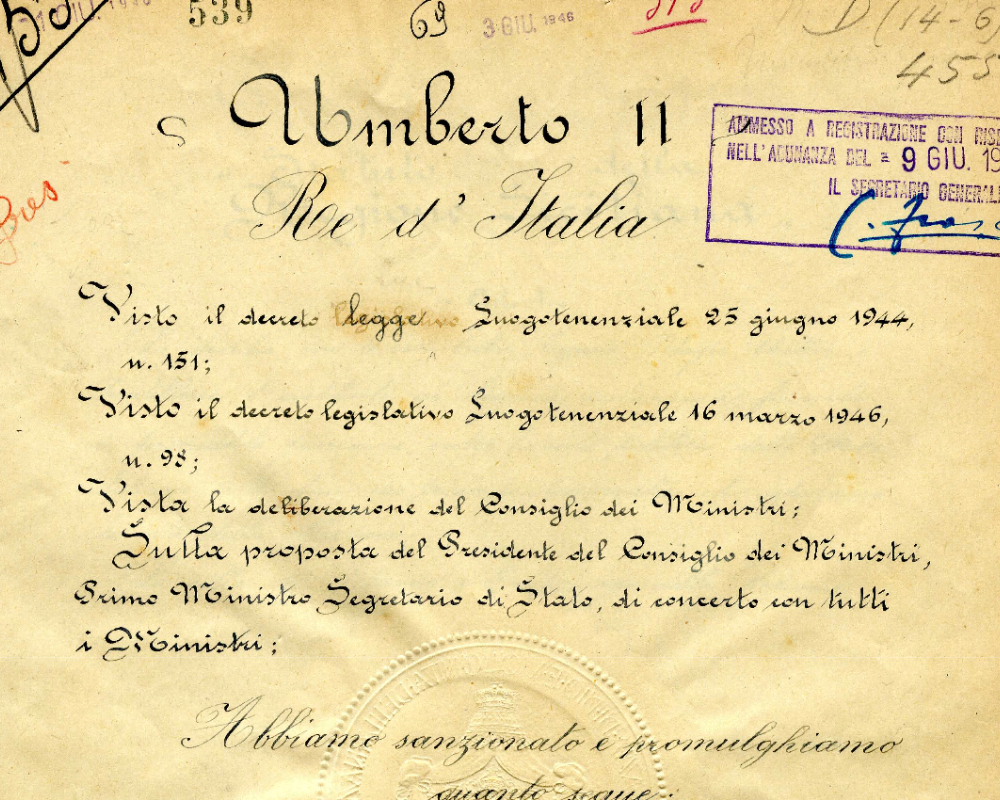 539
69
3 GIU. 1946
D (14-6)
455
Umberto II
Re d'Italia
AMMESSO A REGISTRAZIONE CON RISE
NELL'ADUNANZA DEL = 9 GIU. 19
IL SEGRETARIO GENERALE
Visto il decreto legge Luogotenenziale 25 giugno 1944,
n. 151;
Visto il decreto legislativo Luogotenenziale 16 marzo 1946,
n. 98;
Vista la deliberazione del Consiglio dei Ministri;
Sulla proposta del Presidente del Consiglio dei Ministri,
Primo Ministro Segretario di Stato, di concerto con tutti
i Ministri;
Abbiamo sanzionato e promulghiamo
quanto segue: